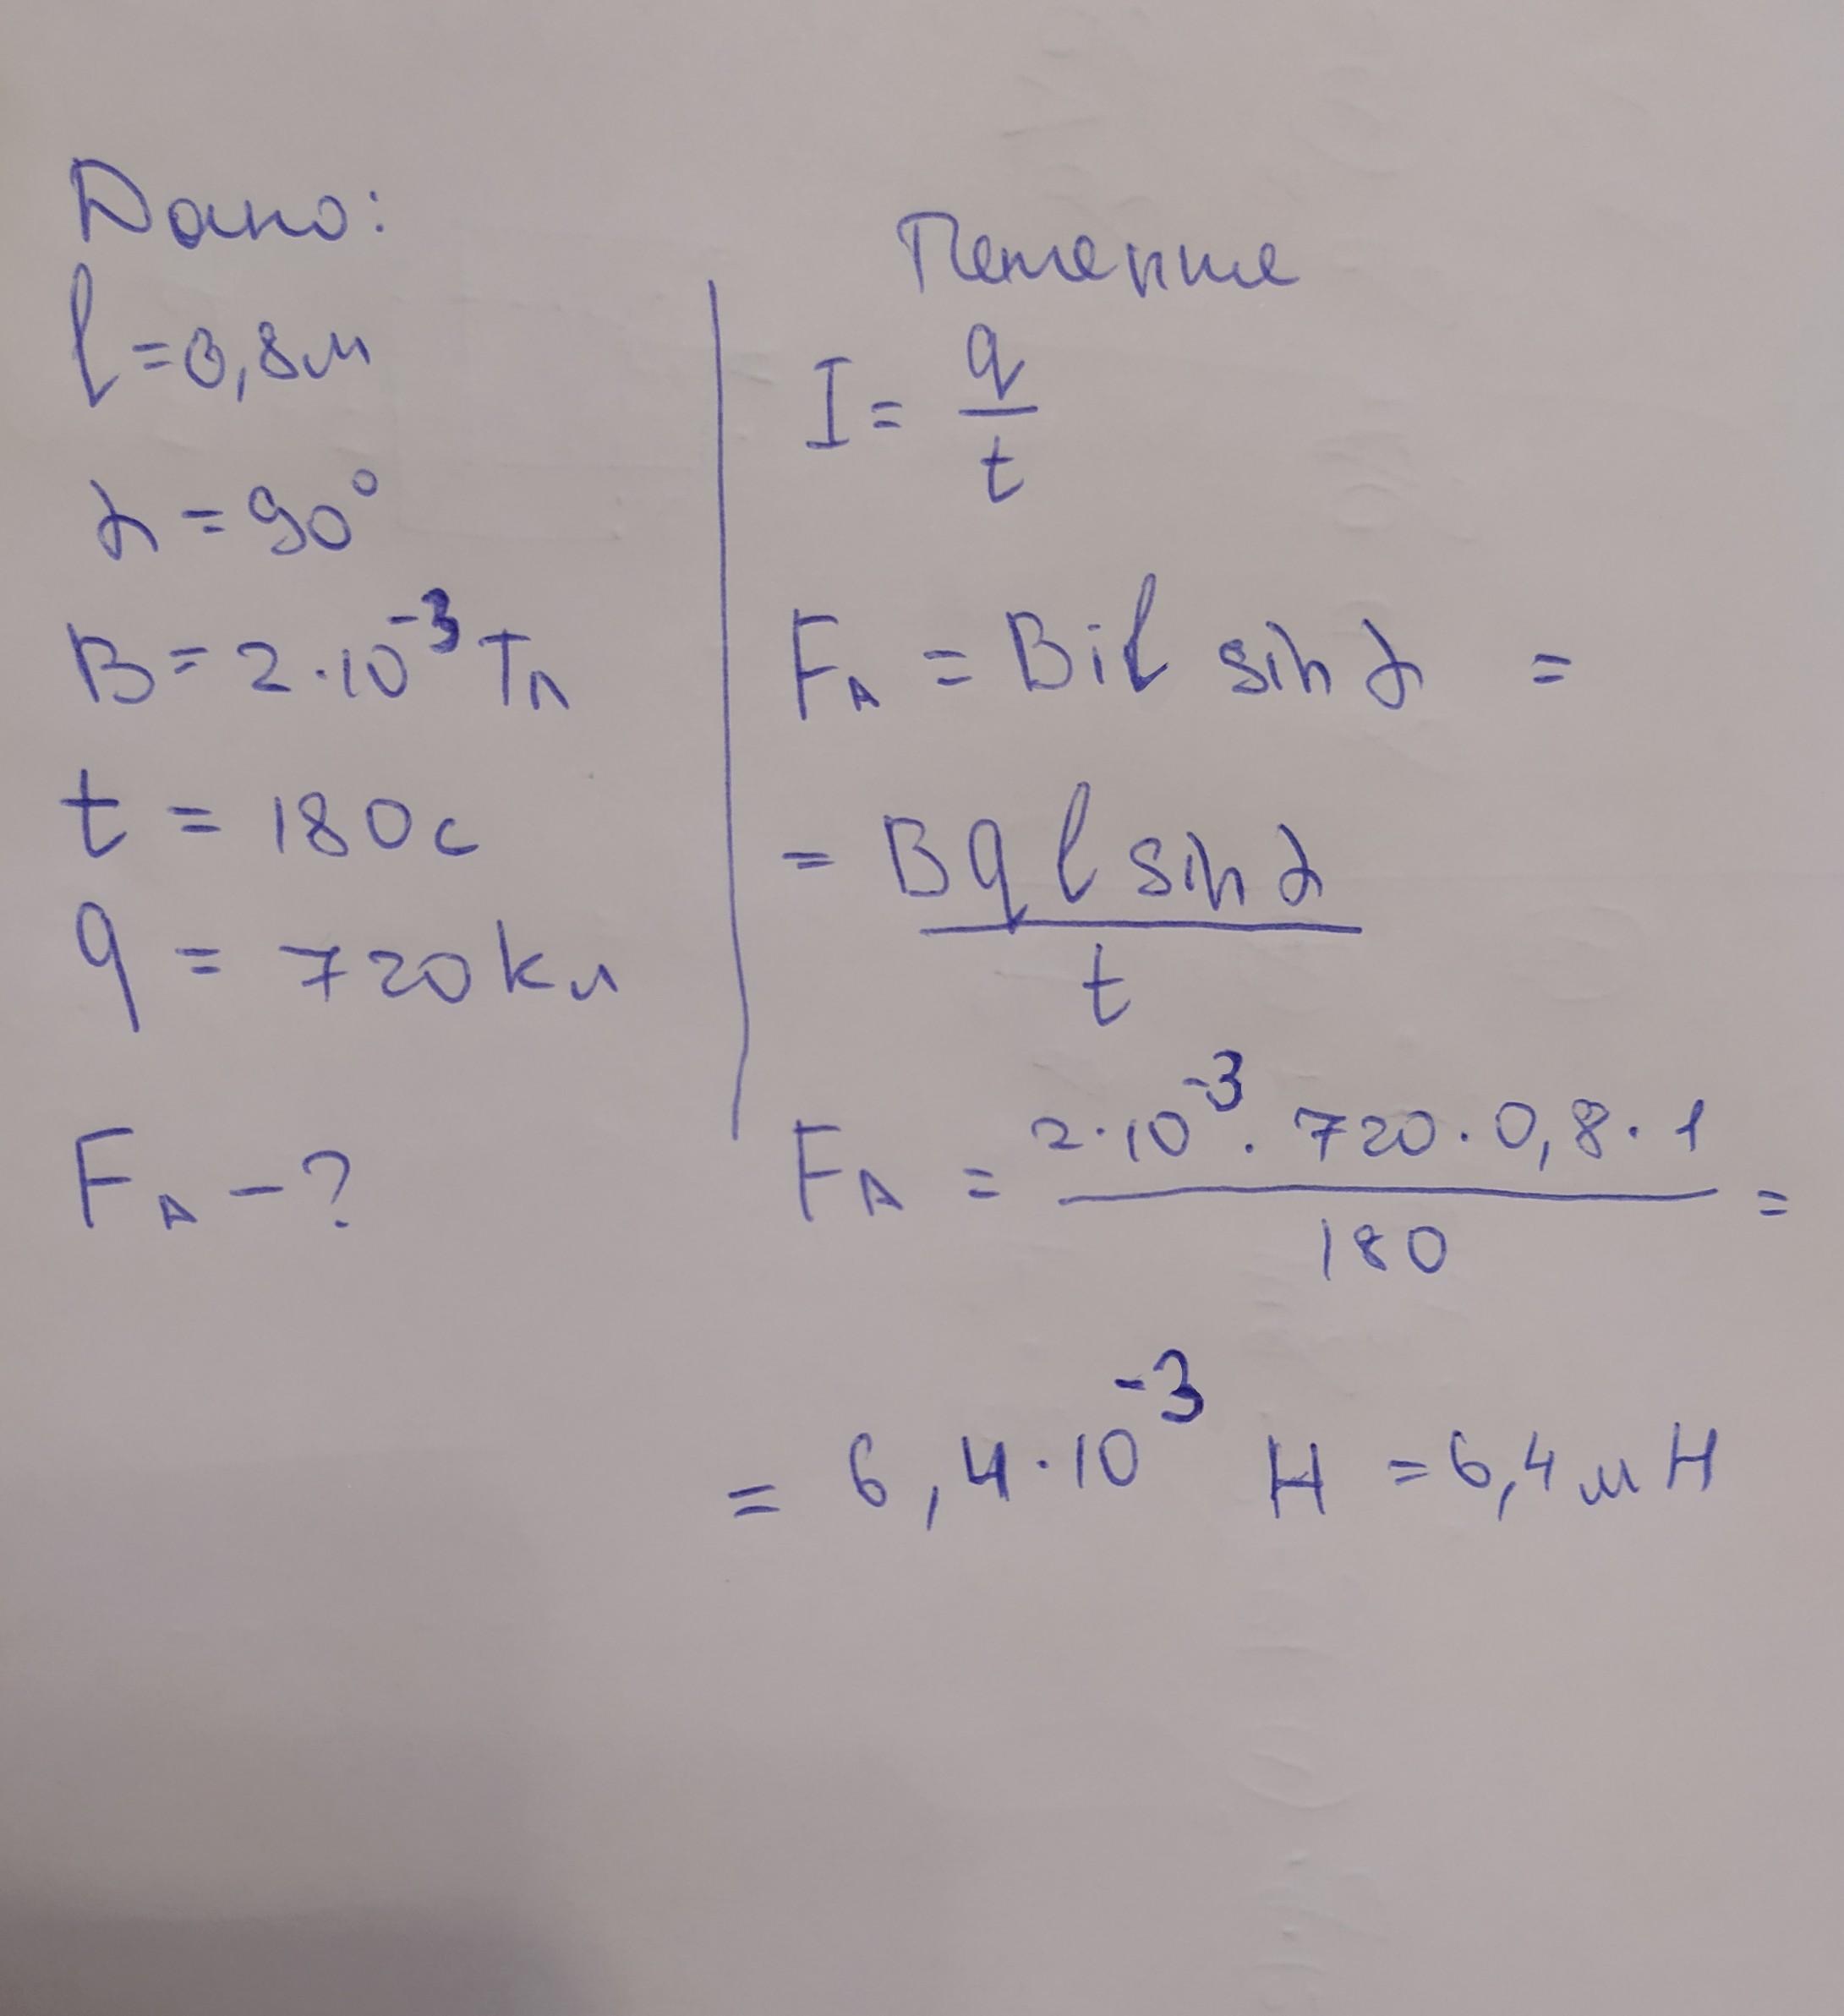 Дано:
l = 0,8 м
α = 90°
B = 2·10⁻³ Тл
t = 180 с
q = 720 Кл
Fₐ - ?
Решение
I = q/t
Fₐ = Bil sin α =
= Bql sin α / t
Fₐ = 2·10⁻³ · 720 · 0,8 · 1 / 180 =
= 6,4·10⁻³ Н = 6,4 мН